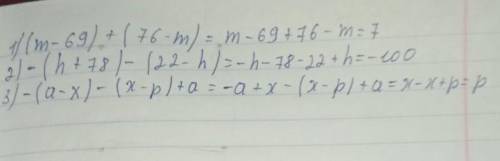 1) (m-69) + (76-m) = m-69+76-m=7
2) -(h+78) - (22-h)=-h-78-22+h=-100
3) -(a-x) - (x-p)+a=-a+x-(x-p)+a=x-x+p=p